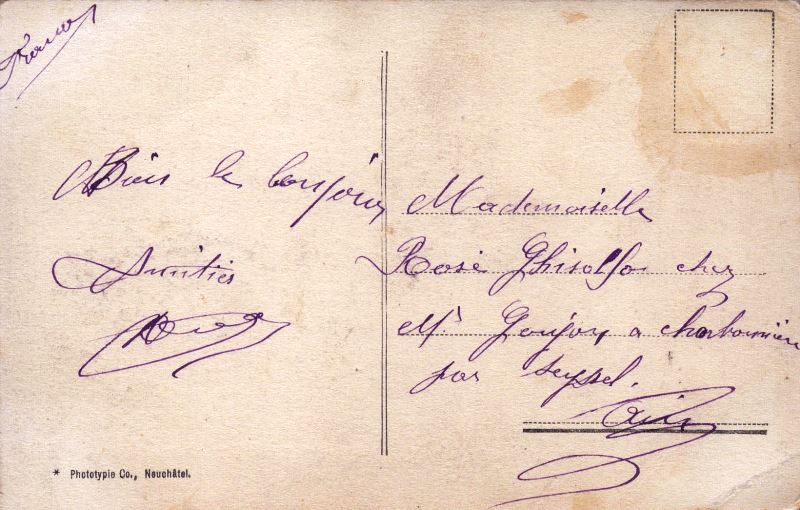 France
Bien le bonjour
Amitiés
Mademoiselle
Rose Ghisolfo chez
Mr Goujon a Charbonnière
par Seyssel.
Ain
* Phototypie Co., Neuchâtel.